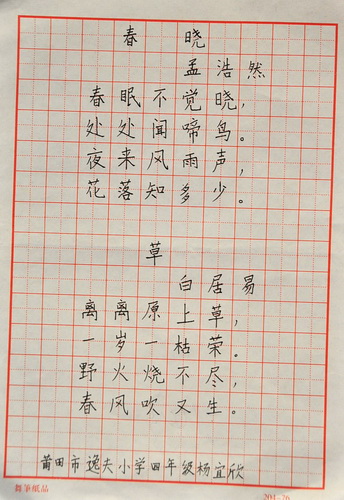 春 晓
孟浩然
春眠不觉晓，
处处闻啼鸟。
夜来风雨声，
花落知多少。
草
白居易
离离原上草，
一岁一枯荣。
野火烧不尽，
春风吹又生。
莆田市逸夫小学四年级杨宜欣